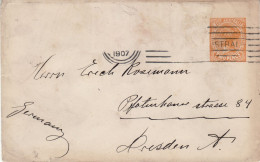 1907
Herrn Erich Rosemann
Pfotenhauer strasse 84
Dresden A.
Germany